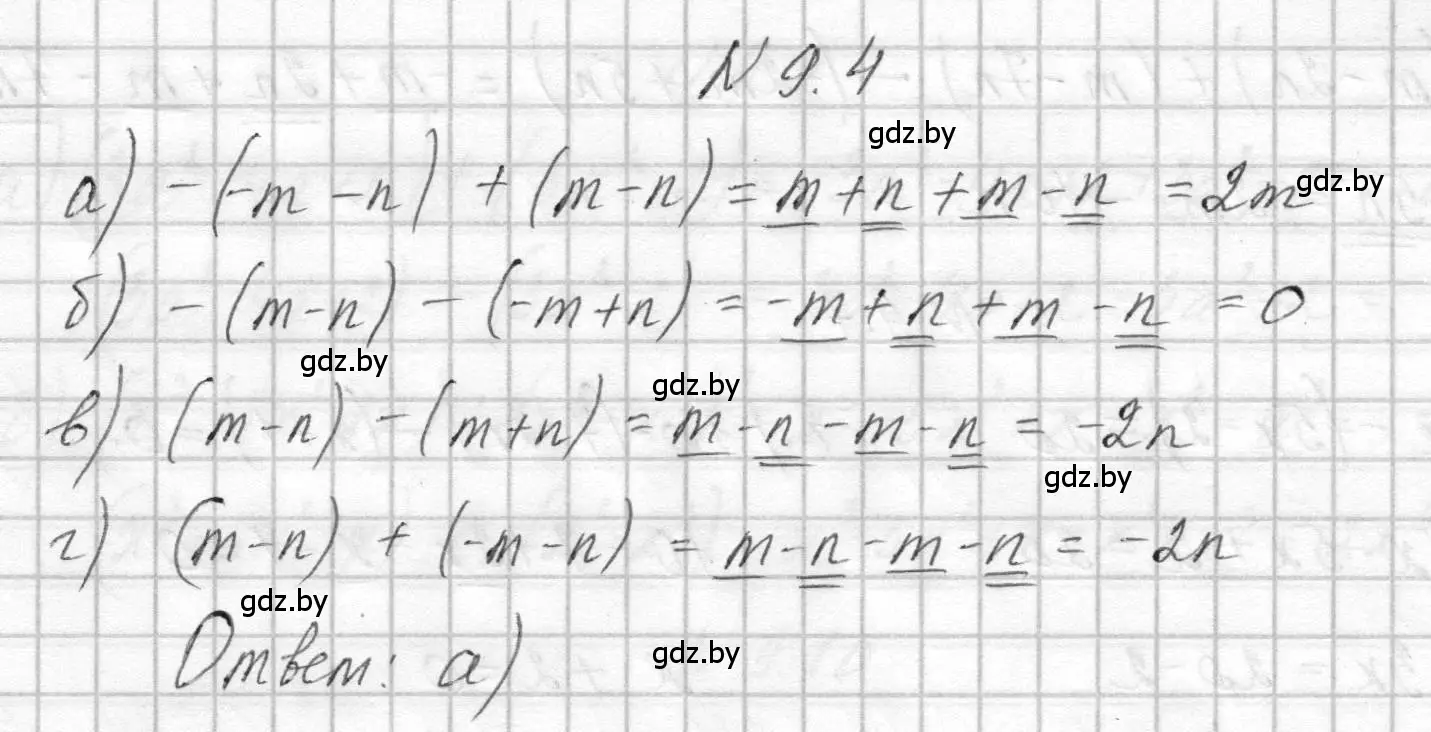 N 9.4
gdz.by
а) -(-m-n) + (m-n) = m+n+m-n = 2m
gdz.by
б) -(m-n) - (-m+n) = -m+n+m-n = 0
gdz.by
gdz.by
в) (m-n) - (m+n) = m-n-m-n = -2n
gdz.by
г) (m-n) + (-m-n) = m-n-m-n = -2n
gdz.by
Ответ: а)
gdz.by